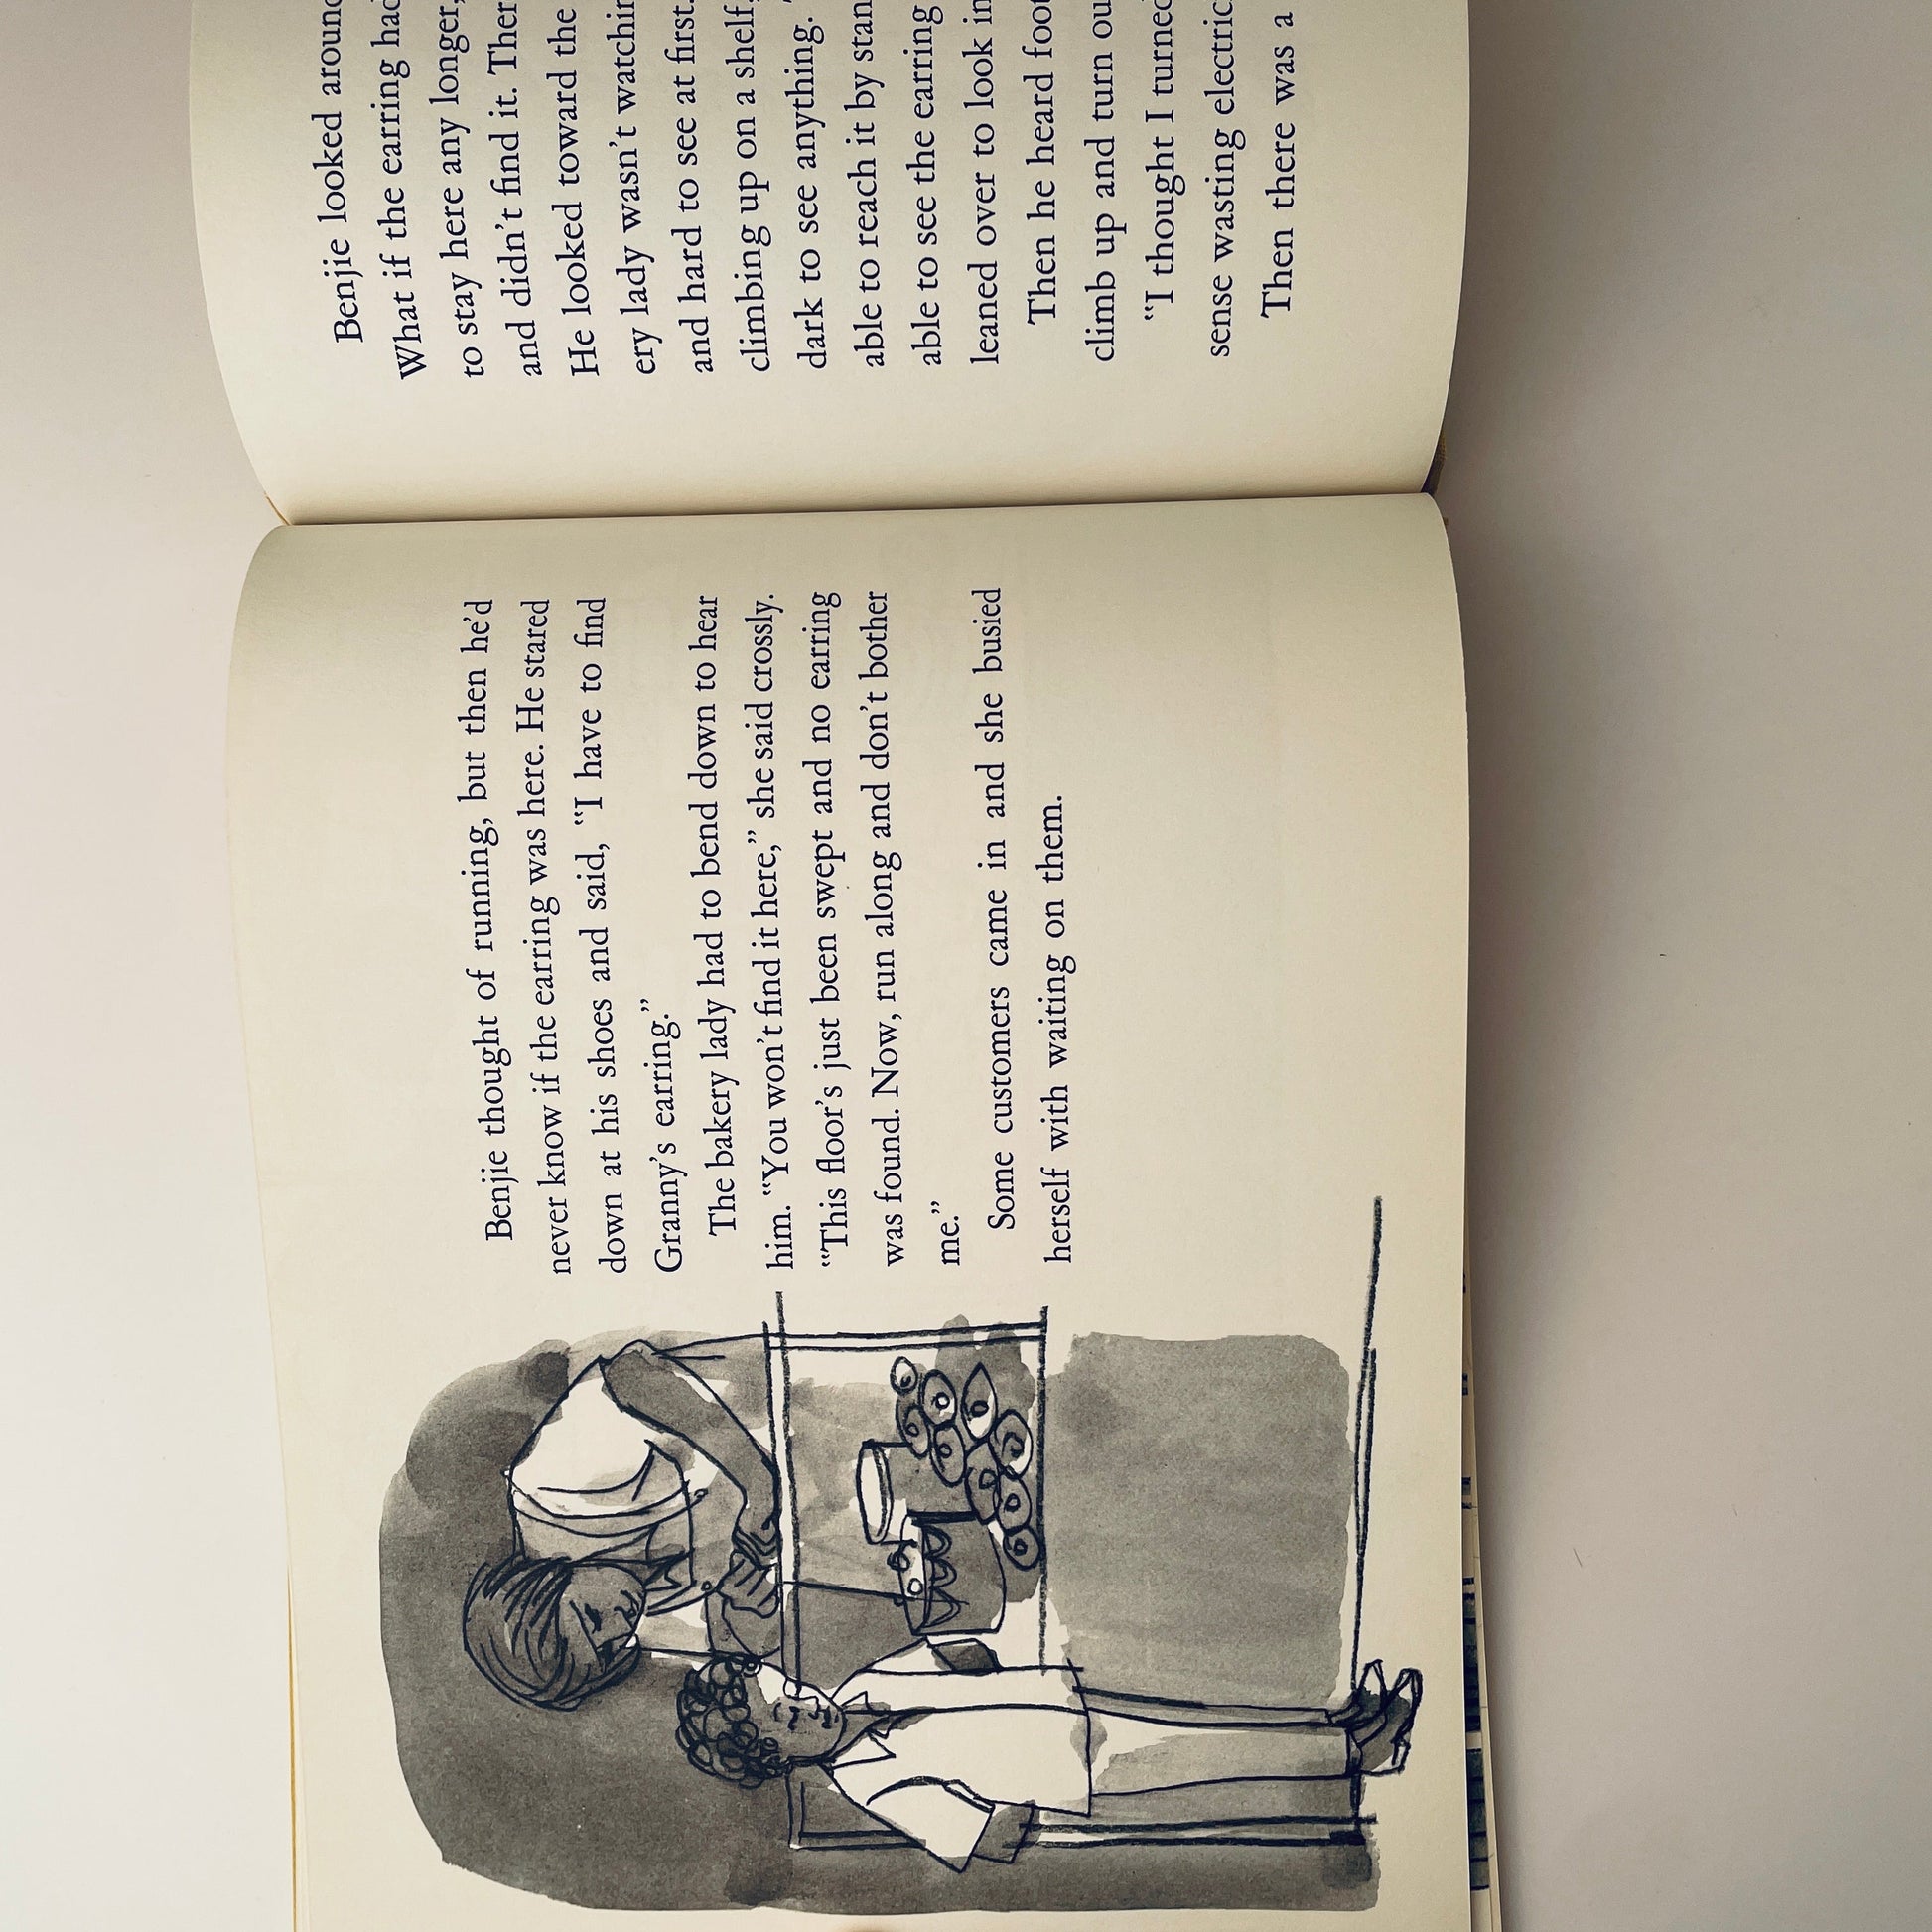 Benjie thought of running, but then he’d
never know if the earring was here. He stared
down at his shoes and said, “I have to find
Granny’s earring.”
The bakery lady had to bend down to hear
him. “You won’t find it here,” she said crossly.
“This floor’s just been swept and no earring
was found. Now, run along and don’t bother
me.”
Some customers came in and she busied
herself with waiting on them.
Benjie looked around
What if the earring had
to stay here any longer,
and didn’t find it. Ther
He looked toward the
ery lady wasn’t watchin
and hard to see at first.
climbing up on a shelf,
dark to see anything.
able to reach it by stan
able to see the earring
leaned over to look in
Then he heard foot
climb up and turn ou
“I thought I turned
sense wasting electric
Then there was a